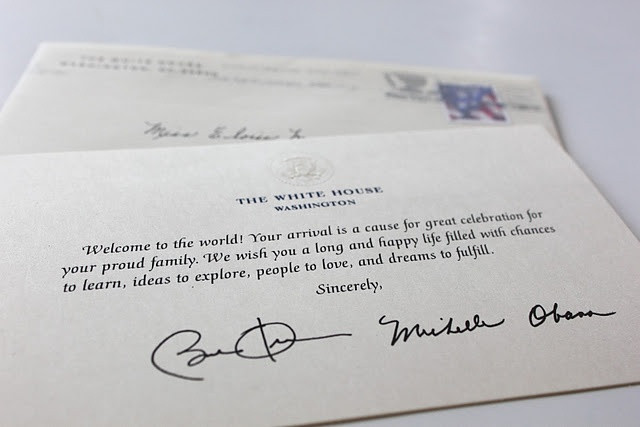 THE WHITE HOUSE
Miss
THE WHITE HOUSE
WASHINGTON
Welcome to the world! Your arrival is a cause for great celebration for
your proud family. We wish you a long and happy life filled with chances
to learn, ideas to explore, people to love, and dreams to fulfill.
Sincerely,
Michelle Obama